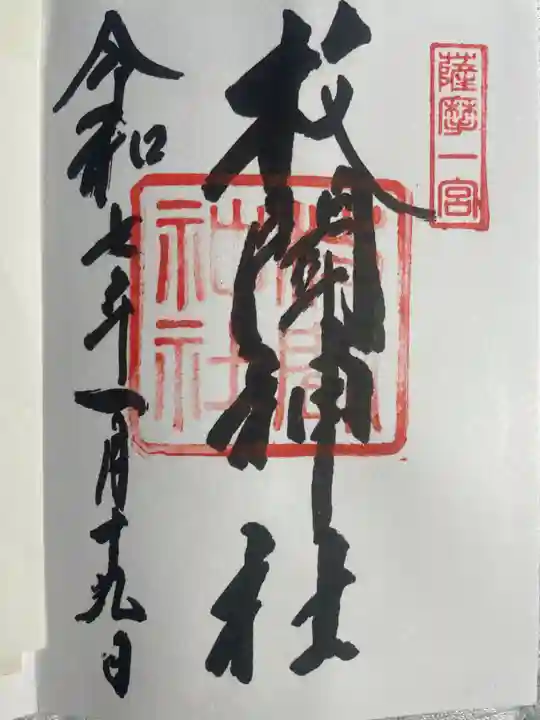 薩摩一宮
枚聞神社
枚聞神社
令和七年一月十九日